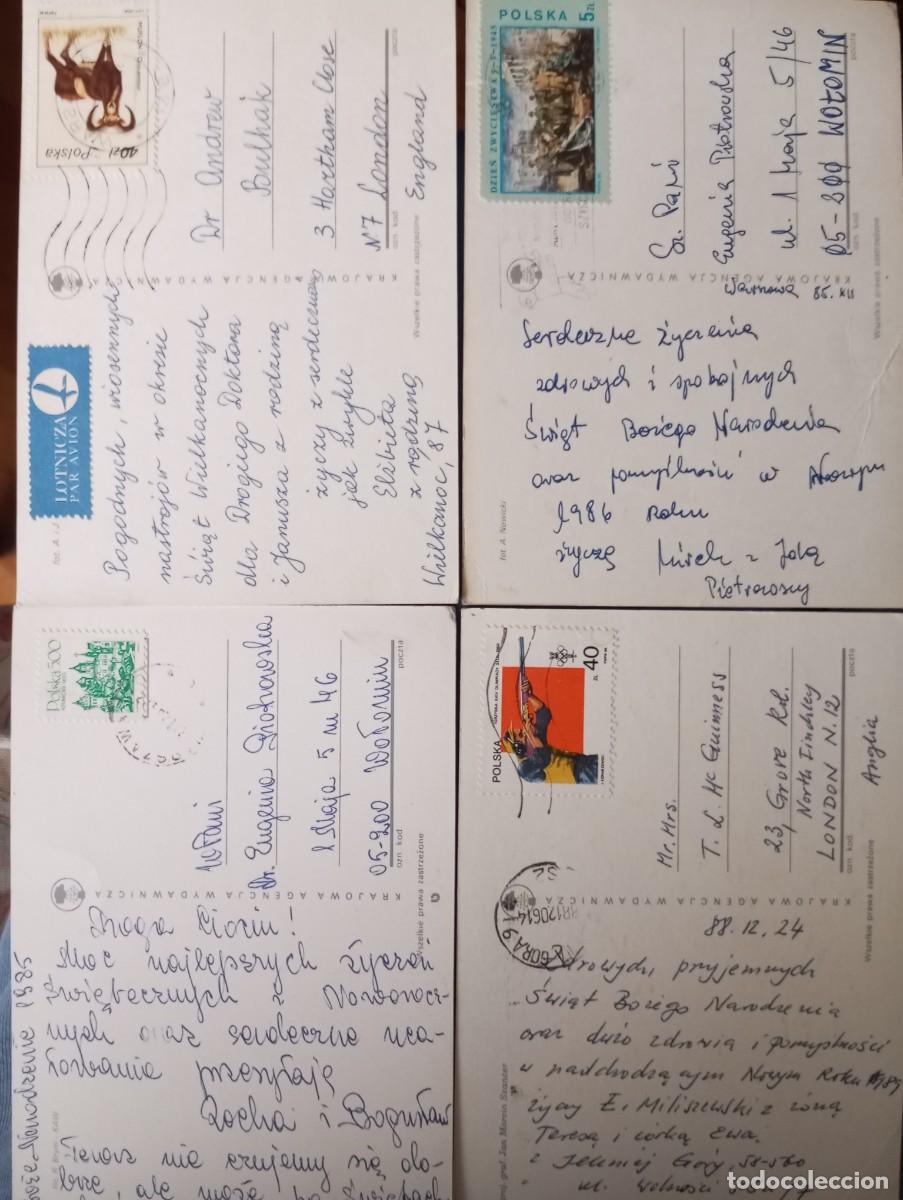 POLSKA
40 zł Polska
LOTNICZA
PAR AVION
Dr Andrew
Bulhak
3 Hartham Close
N7 London
England
ozn. kod
poczta
Wszelkie prawa zastrzeżone
KRAJOWA AGENCJA WYDAWNICZA
Pogodnych, wiosennych
nastrojów w okresie
Świąt Wielkanocnych
dla Drogiego Doktora
i Janusza z rodziną
życzy z serdecznością
jak zwykle
Elżbieta
z rodziną
Wielkanoc, 87
POLSKA 5 zł
DZIEŃ ZWYCIĘSTWA 9-V-1945
Sz. Pani
Eugenia Piotrowska
ul. 1 Maja 5/46
05-200 WOŁOMIN
ozn. kod
poczta
Wszelkie prawa zastrzeżone
KRAJOWA AGENCJA WYDAWNICZA
fot. A. Nowicki
Warszawa 85. XII
Serdeczne życzenia
zdrowych i spokojnych
Świąt Bożego Narodzenia
oraz pomyślności w Nowym
1986 roku
życzą Mirek z Jolą
Polska 5.00
W Pani
Dr. Eugenia Piotrowska
1 Maja 5 m 46
05-200 Wołomin
ozn. kod
poczta
Wszelkie prawa zastrzeżone
KRAJOWA AGENCJA WYDAWNICZA
Boże Narodzenie 1985
Droga Ciociu!
Moc najlepszych życzeń
świątecznych i Noworocz-
nych oraz serdeczne uca-
łowania przesyłają
i Bogusław
Teraz nie czujemy się do-
brze, ale może po
POLSKA
40 ZŁ
Mr. Mrs.
T. L. Mc Guinness
23, Grove Rd.
North Finchley
LONDON N.12
Anglia
ozn. kod
poczta
Wszelkie prawa zastrzeżone
KRAJOWA AGENCJA WYDAWNICZA
GÓRA 9
88.12.24
Zdrowych, przyjemnych
Świąt Bożego Narodzenia
oraz dużo zdrowia i pomyślności
w nadchodzącym Nowym Roku 1989
życzy E. Miliszewski z żoną
Teresą i córką Ewa.
z Jeleniej Góry 58-560
ul. Wolności
graf. Jan Marcin Szancer
todocoleccion